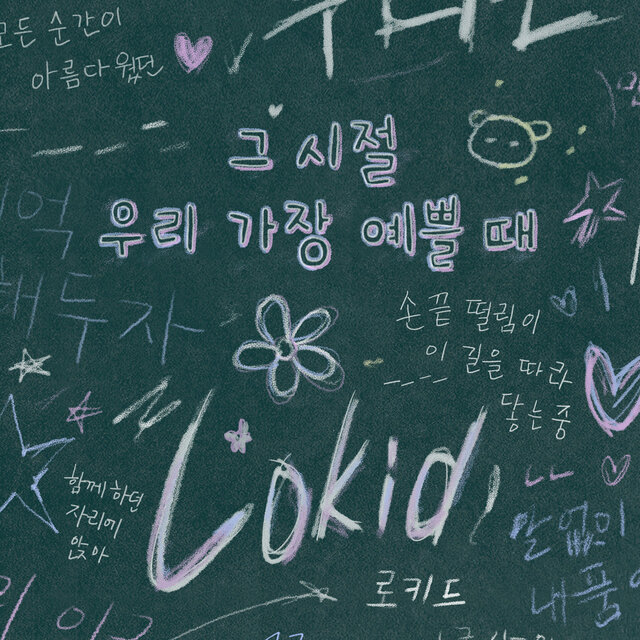 모든 순간이
아름다웠던
그 시절
우리 가장 예쁠 때
해두자
손끝 떨림이
이 길을 따라
닿는 중
Lokid
함께 하던
자리에
앉아
말없이
내 품
로키드